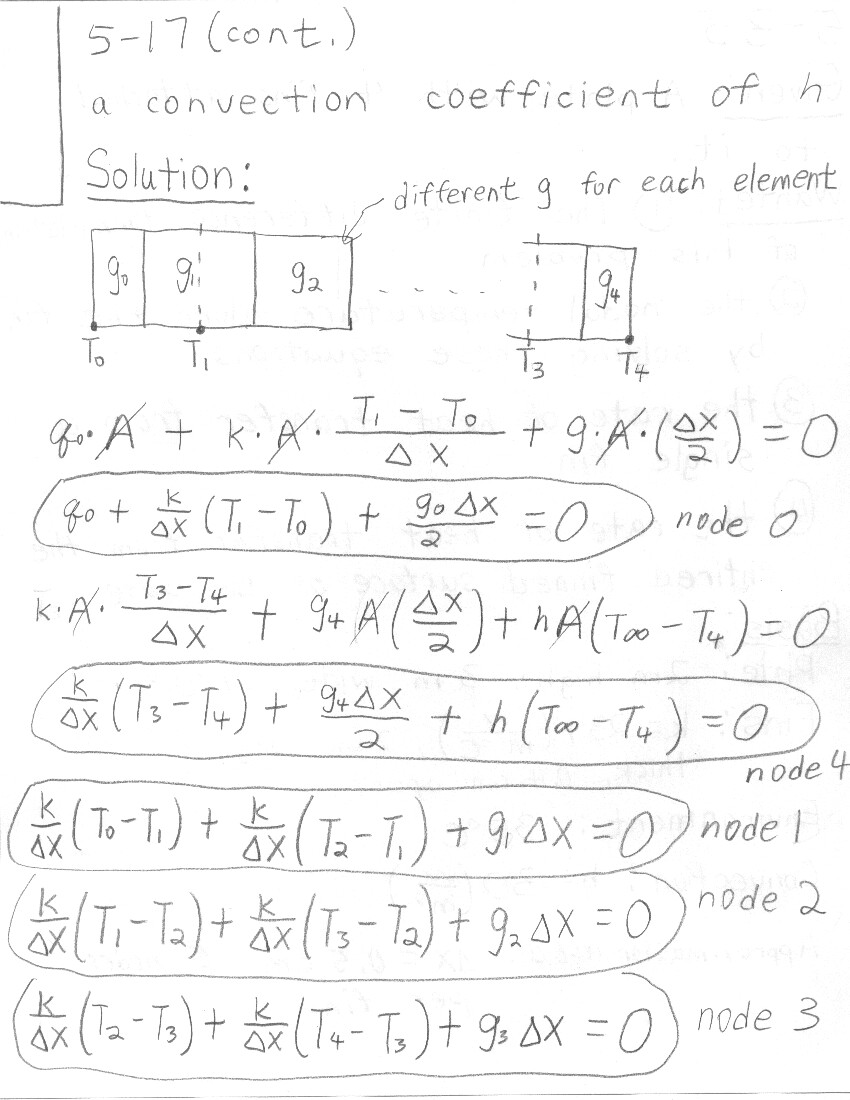 5-17 (cont.)
a convection coefficient of h
Solution:
different g for each element
g₀ g₁ g₂ . . . . . g₄
T₀ T₁ T₃ T₄
q₀·A + k·A·(T₁ - T₀)/ΔX + g·A·(ΔX/2) = 0
q₀ + k/ΔX (T₁ - T₀) + g₀ΔX/2 = 0 node 0
k·A·(T₃ - T₄)/ΔX + g₄A(ΔX/2) + hA(T∞ - T₄) = 0
k/ΔX (T₃ - T₄) + g₄ΔX/2 + h(T∞ - T₄) = 0
node 4
k/ΔX (T₀ - T₁) + k/ΔX (T₂ - T₁) + g₁ΔX = 0 node 1
k/ΔX (T₁ - T₂) + k/ΔX (T₃ - T₂) + g₂ΔX = 0 node 2
k/ΔX (T₂ - T₃) + k/ΔX (T₄ - T₃) + g₃ΔX = 0 node 3